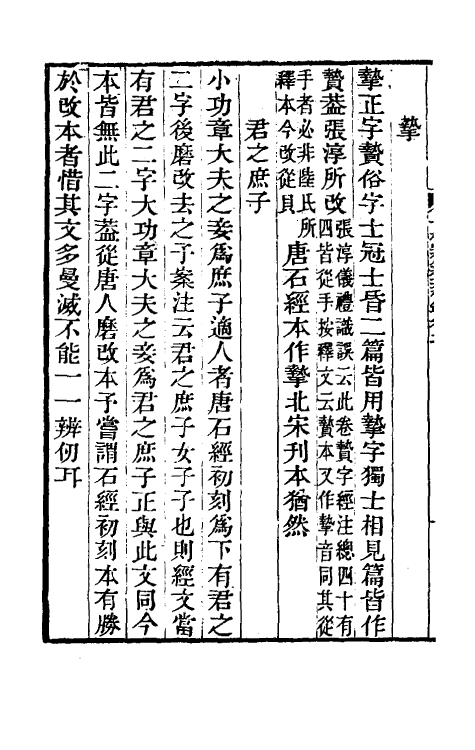 摯
摯正字贄俗字士冠士昏二篇皆用摯字獨士相見篇皆作
贄葢張淳所改張淳儀禮識誤云此卷贄字經注總四十有
四皆從手按釋文云贄本又作摯音同其從
手者必非陸氏所
釋本今改從貝唐石經本作摯北宋刊本猶然
君之庶子
小功章大夫之妾爲庶子適人者唐石經初刻爲下有君之
二字後磨改去之予案注云君之庶子女子子也則經文當
有君之二字大功章大夫之妾爲君之庶子正與此文同今
本皆無此二字葢從唐人磨改本予嘗謂石經初刻本有勝
於改本者惜其文多曼滅不能一一辨仞耳